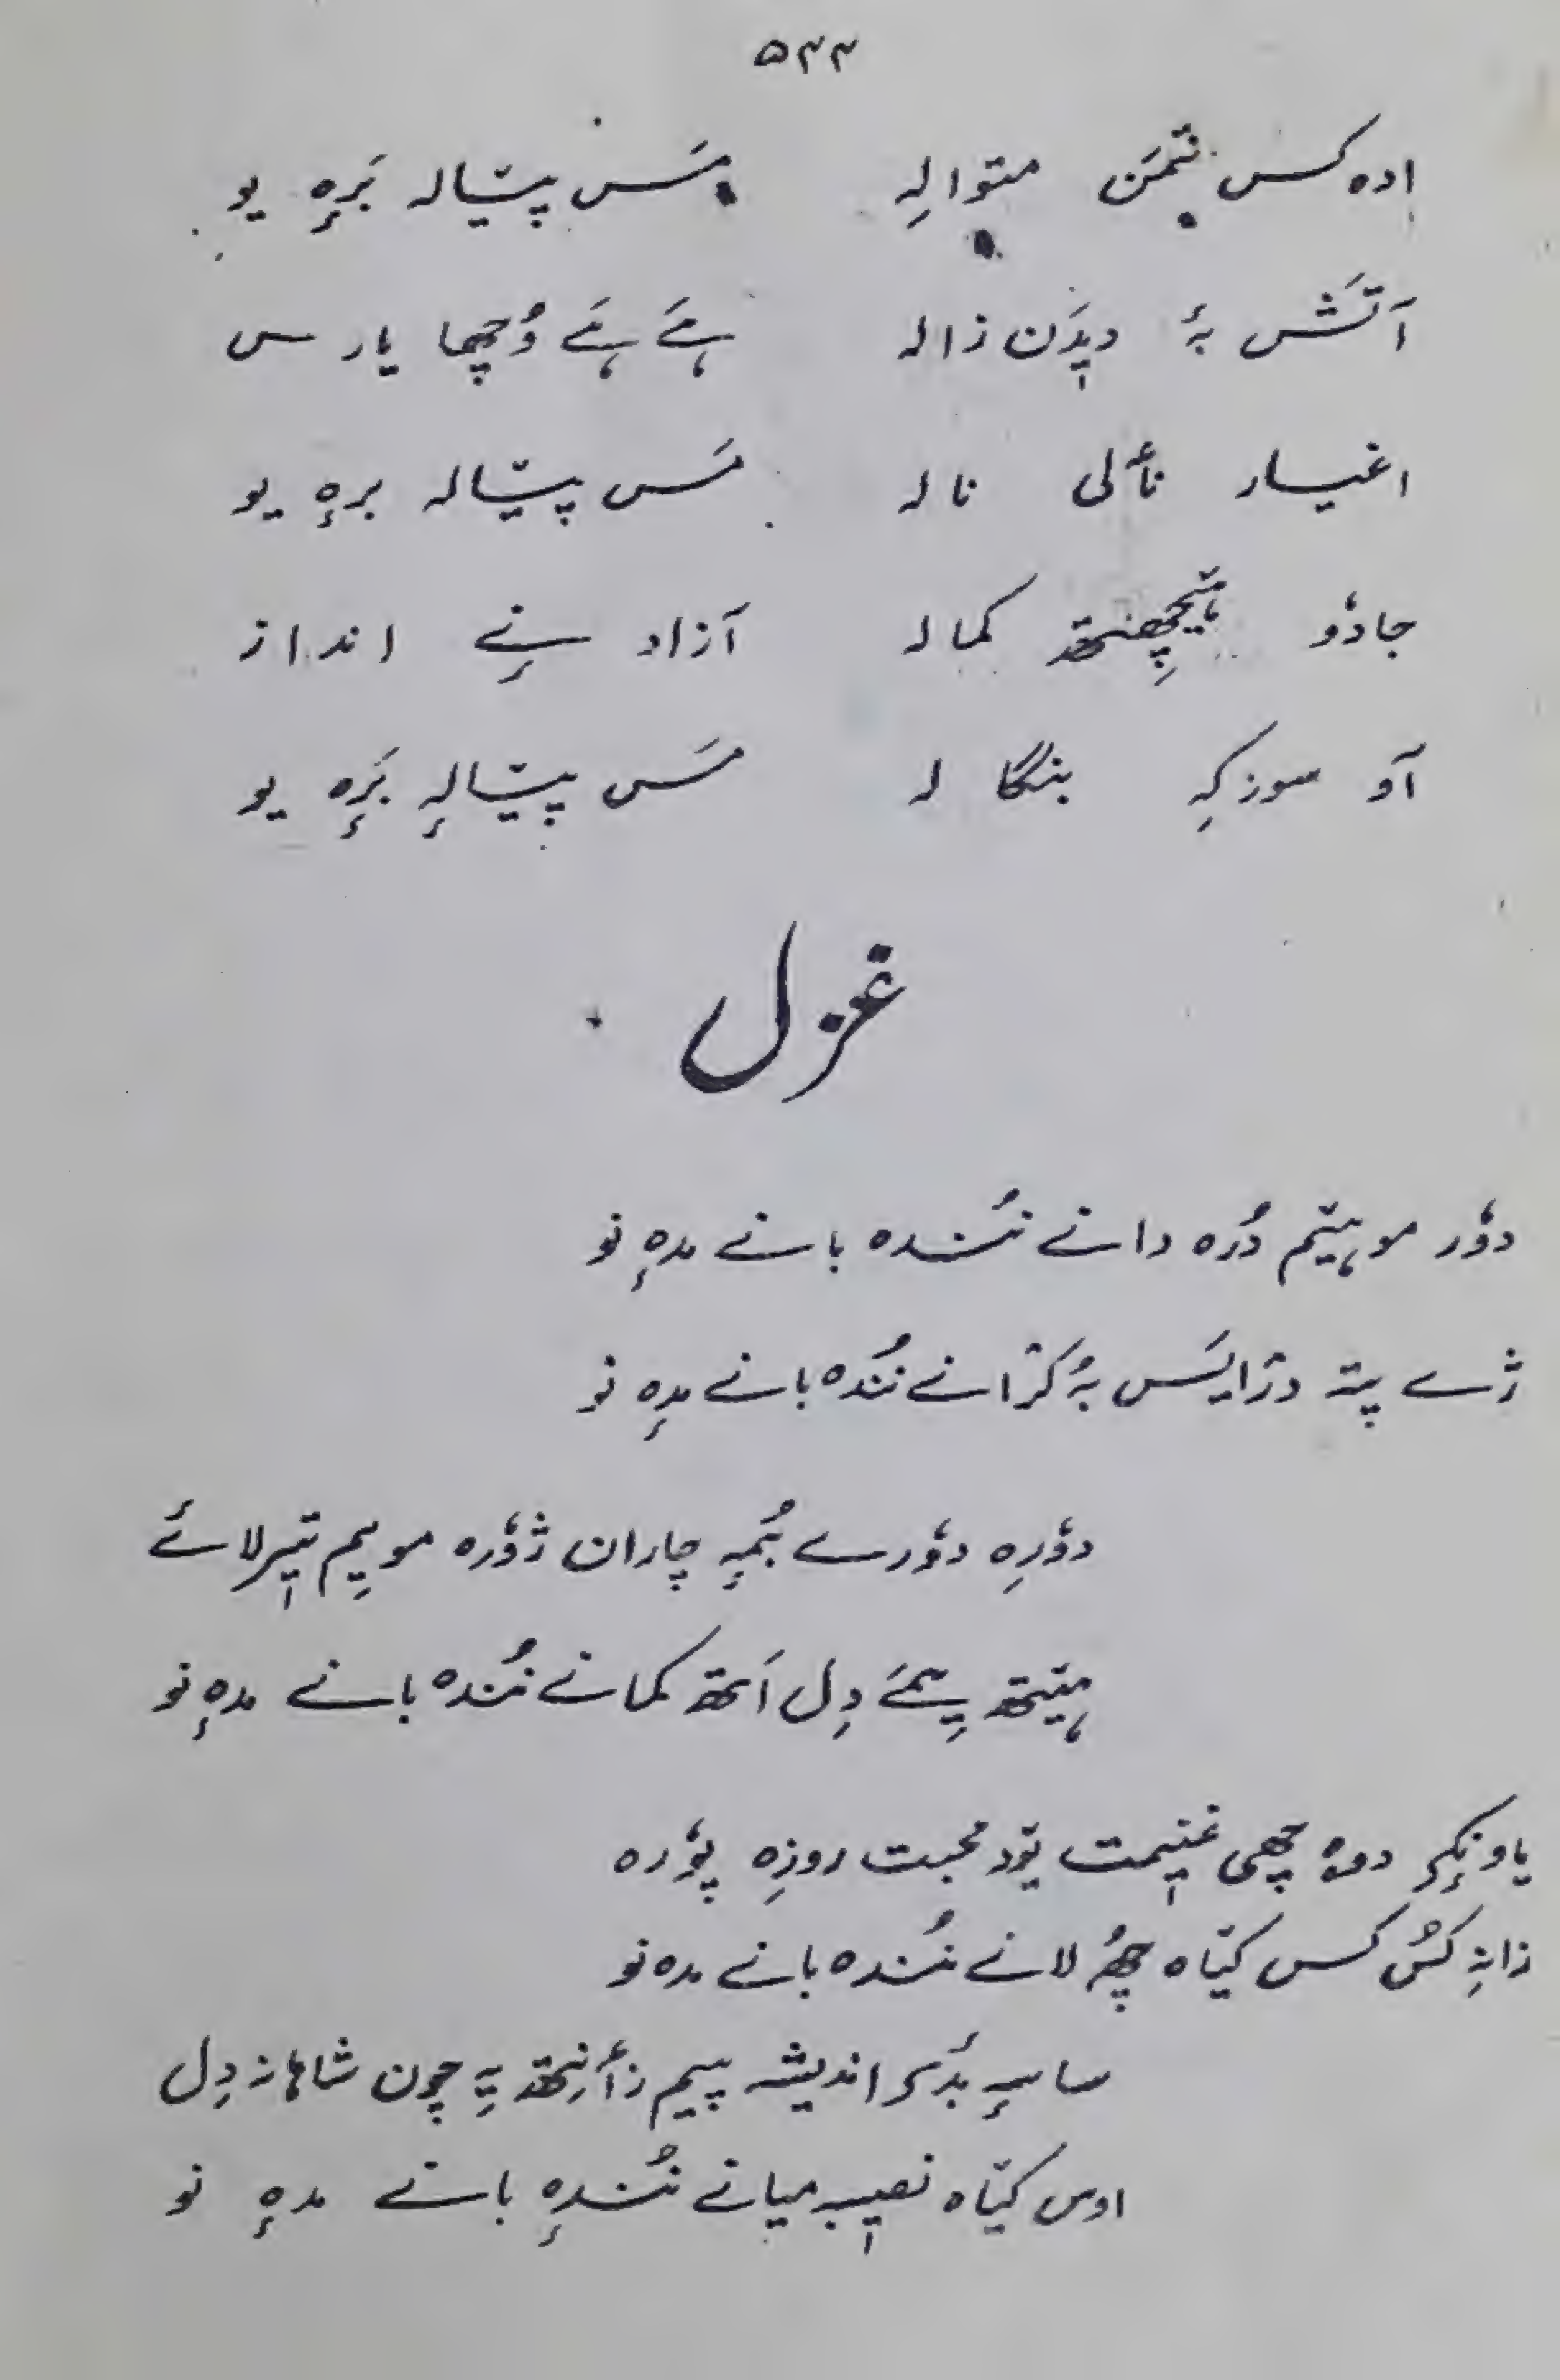 ۵۴۴
ادہ کس متوالہِ مَس پیٛالہ بَرٕہ یو
آتَش بہٕ دیٖدَن زالہ ہے ہے وُچھا یارس
اغیار نٲلی نالہ مَس پیٛالہ برٕہ یو
جادوٗ کمالہ آزاد نِے انداز
آو سوزکہِ بنگالہ مَس پیٛالہٕ بَرٕہ یو
غزل
دوٗر موہیٚتم دُرہ دانے نُندہ بانے مدہٕ نو
ژے پتہ دژایَس بہٕ کرٛانے نُندہ بانے مدہٕ نو
دوٗرِہ دوٗرے بُمہٕ چاران ژوٗرہ موییِم تیٖرلائے
ہیٚتھ پیمَے دِل اَتھ کمانے نُندہ بانے مدہٕ نو
دوہ چھی غنیٖمت محبت روزِہ پوٗرہ
زانہِ کُس کس کیٛاہ چھُ لانے نُندہ بانے مدہ نو
اندیشہ زٲنِتھ یہِ چون شاہانہ دِل
اوس کیٛاہ نصیٖب میانے نُندہٕ بانے مدہٕ نو